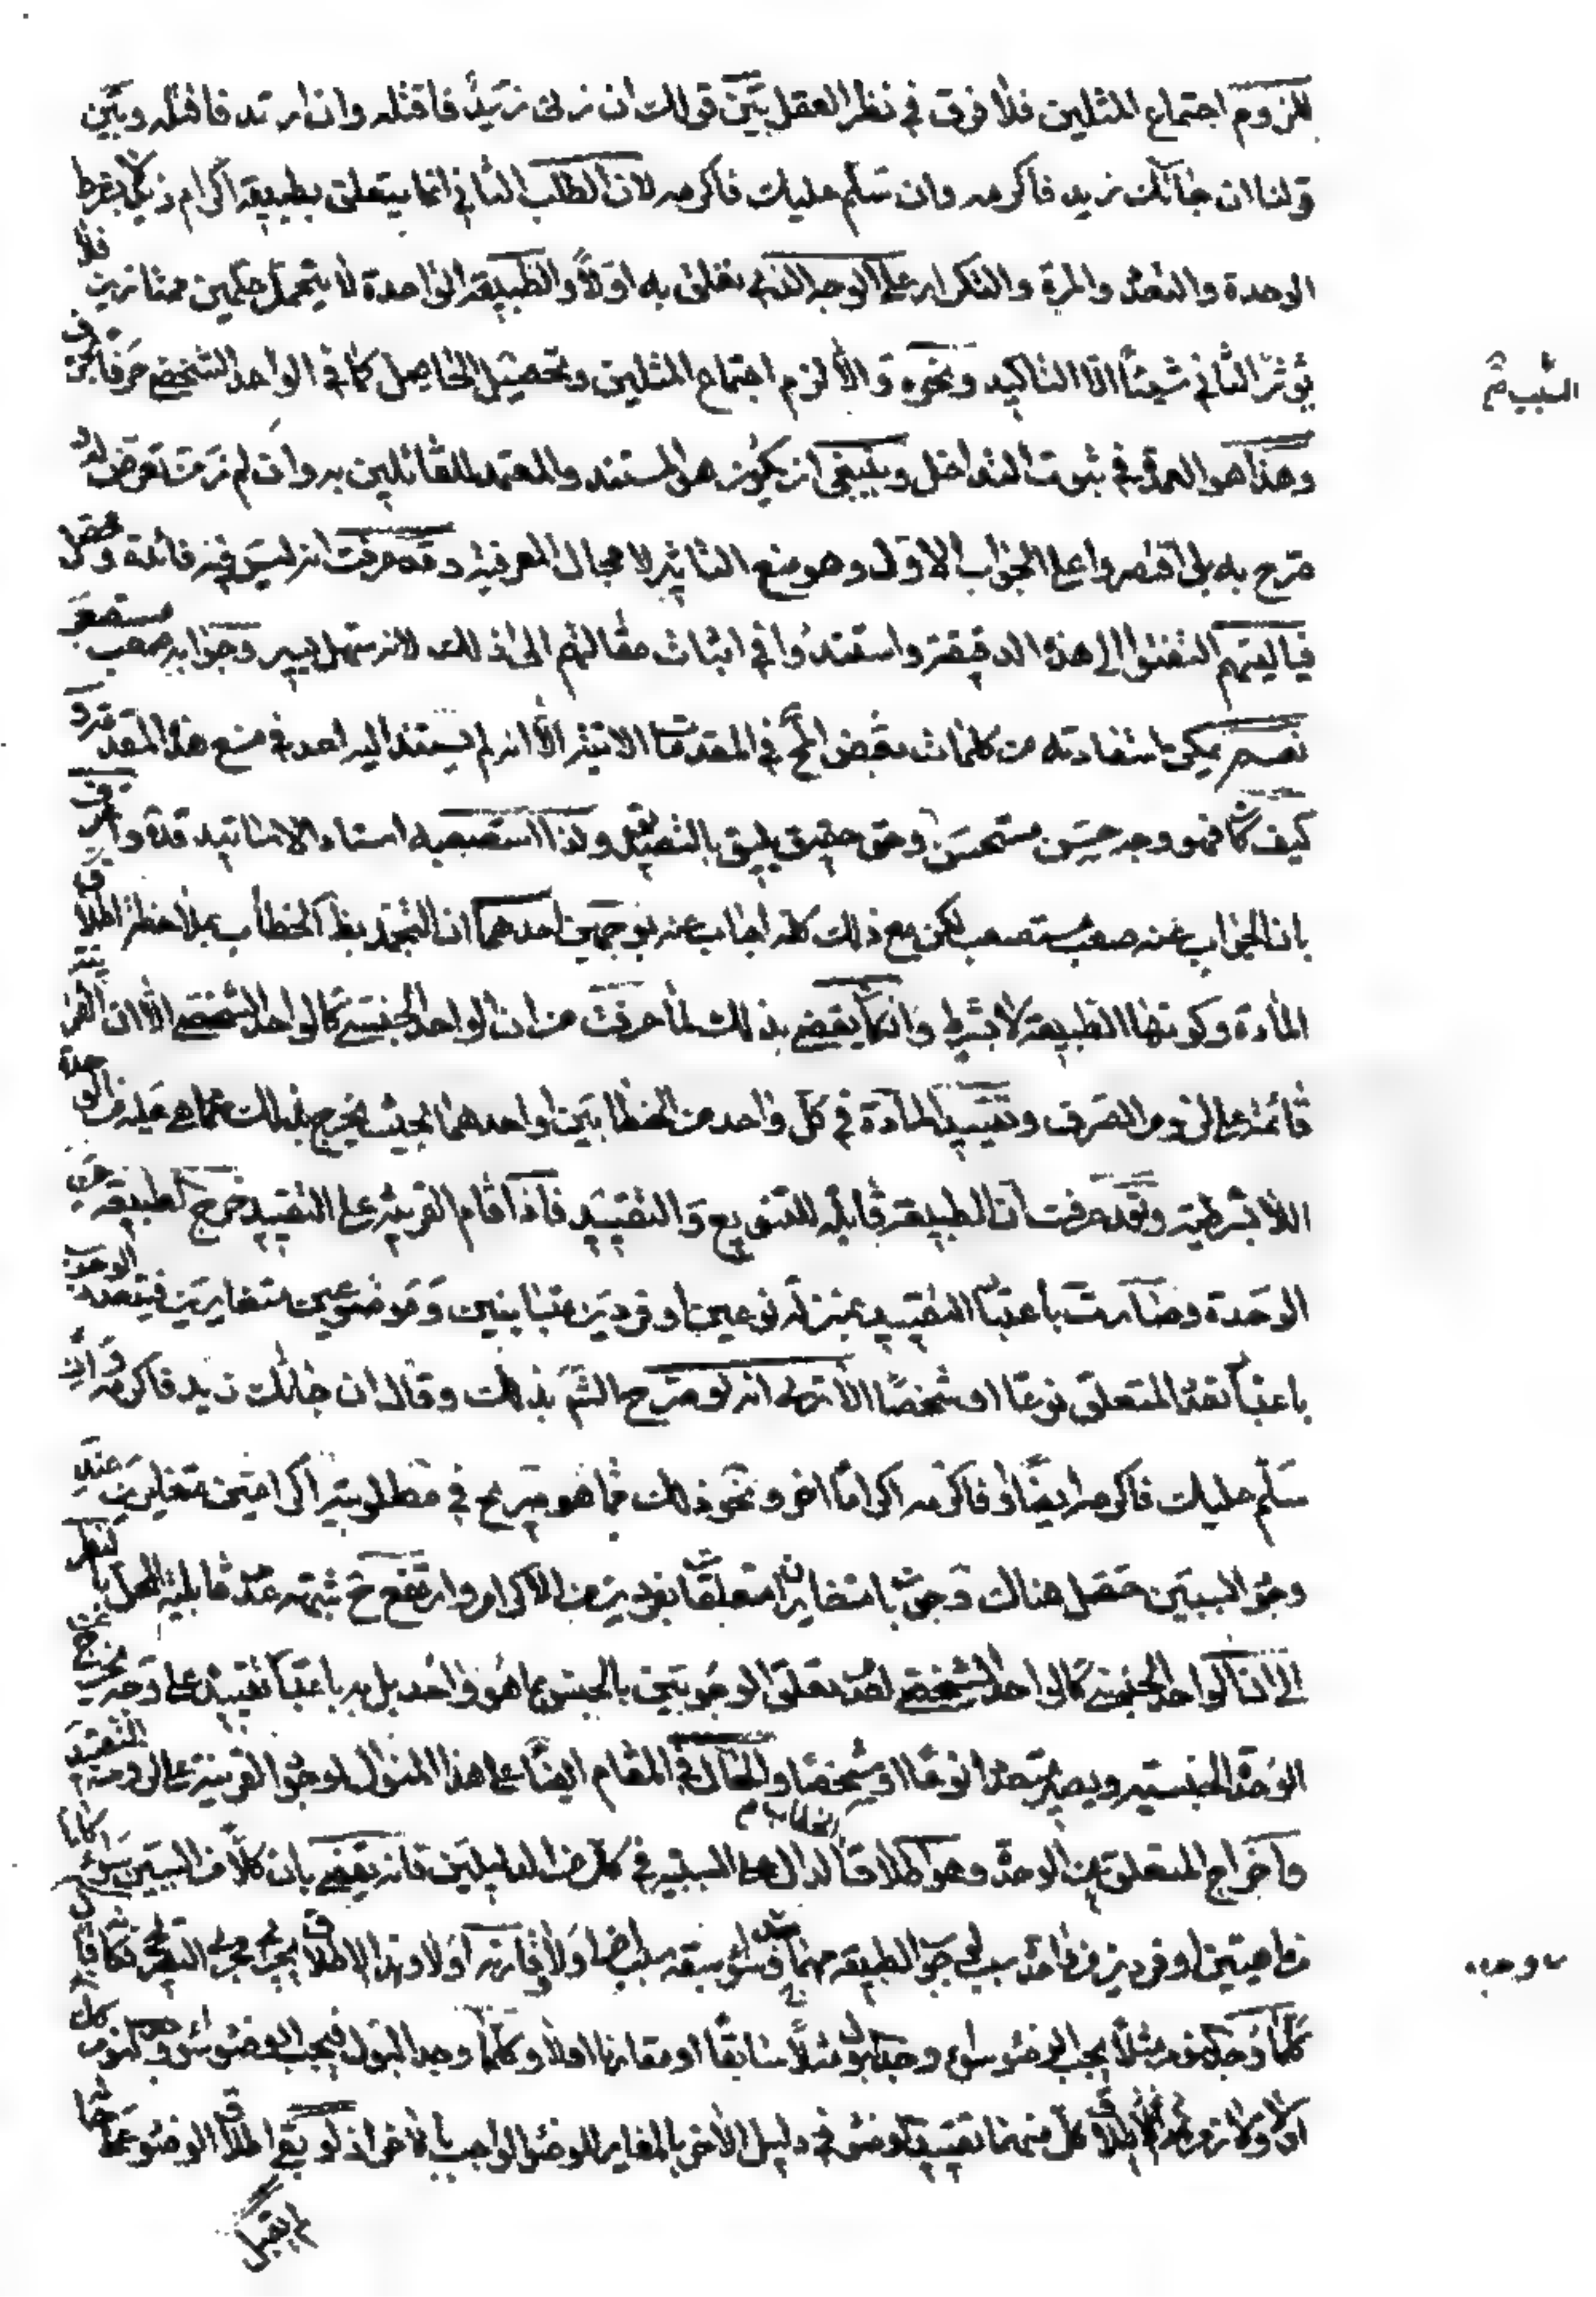 للزوم اجتماع المثلين فلا فرق في نظر العقل بين قولك ان زنى زيد فاقتله وان ارتد فاقتله وبين
قولنا ان جائك زيد فاكرمه وان سلم عليك فاكرمه لان الطلب الثاني انما يتعلق بطبيعة اكرام زيد لا بشرط
الوحدة والتعدد والمرة والتكرار على الوجه الذي تعلق به اولا والطبيعة الواحدة لا يتحمل حكمين ممتازين فلا
يؤثر الثاني شيئا الا التاكيد ونحوه والا لزم اجتماع المثلين وتحصيل الحاصل كما في الواحد الشخصي حرفا بحرف
وهذا هو العمدة في ثبوت التداخل وينبغي ان يكون هو المستند والمعتمد للقائلين به وان لم نر من تعرض له او
صرح به بل اقتصروا على الجواب الاول وهو منع التاثير لا مجال المعرفية وقد عرفت انه ليس فيه فائدة
فياليتهم التفتوا الى هذه الدقيقة واستندوا في اثبات مقالتهم الى ذلك لانه سهل يسير وجوابه صعب مستصعب
نعم يمكن استفادته من كلمات بعض في المقدمات الاتية الا انه لم يستند اليه احد في منع هذه المقدمة و
كيف كان فهو وجه حسن مستحسن وحق حقيق يليق بالتصديق ولذا استصعبه استاد الاساتيد قده واعترف
بان الجواب عنه صعب مستصعب لكن مع ذلك كله اجاب عنه بوجهين احدهما ان التجرد بظ الخطاب بملاحظة اطلاق
المادة وكونها الطبيعة لا بشرط وان كان يقضي بذلك لما عرفت من ان الواحد الجنسي كالواحد الشخصي الا ان القرينة
قائمة على لزوم الصرف وتقييد المادة في كل واحد من الخطابين او احدهما بحيث يخرج بذلك عما هي عليه من الوحدة
اللابشرطية وقد عرفت ان الطبيعة قابلة للتنويع والتقييد فاذا قام القرينة على التقييد خرج الطبيعة عن
الوحدة وصارت باعتبار التقييد بمنزلة نوعين او فردين متباينين وموضوعين متغايرين فيتعدد الوجوب
باعتبار تعدد المتعلق نوعا او شخصا الا ترى انه لو صرح الشم بذلك وقال ان جائك زيد فاكرمه وان
سلم عليك فاكرمه ايضا او فاكرمه اكراما اخر ونحو ذلك مما هو صريح في مطلوبية اكرامين متغايرين عند
وجود السببين حصل هناك وجوبان متغايران متعلقان بفردين من الاكرام وارتفع ح شبهة عدم قابلية المحل بالنظر
الى ان الواحد الجنسي كالواحد الشخصي لعدم تعلق الوجوبين بالجنس بما هو واحد بل به باعتبار تقييده على وجه يخرج عن
الوحدة الجنسية ويصير متعددا نوعا او شخصا والحال في المقام ايضا على هذا المنوال لوجود القرينة على لزوم التقييد
واخراج المتعلق عن الوحدة وهو اطلاق الدال على السببية في كل من الدليلين فانه يقضي بان كلا من السببين سواء كانا
من ماهيتين او فردين من واحدة سبب لوجوب الطبيعة سواء سبقه سبب ايضا اولا قارنه اولا وهذا الاطلاق يجري مجرى التصريح فكانه قال
كلما وجد النوم مثلا يجب الوضوء سواء وجد البول مثلا سابقا او مقارنا اولا وكلما وجد البول فيجب الوضوء سواء وجد النوم
اولا ولازم الاطلاق كل منهما تقييد الوضوء في دليل الاخر بالمغاير للوضوء الواجب بالاخر اذ لو بقي اطلاق الوضوء
لم يقبل
السبب ثم